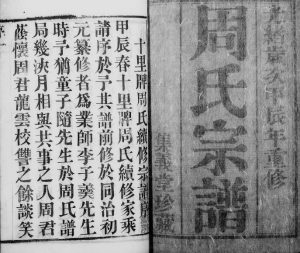 光緒歲甲辰年重修
周氏宗譜
集義堂珍藏
十里牌周氏續修宗譜序
甲辰春十里牌周氏續修家乘
請序於予其譜前修於同治初
元纂修者為業師李子羹先生
時予猶童子隨先生於周氏譜
局幾浹月相與共事之人周君
懷周君龍雲校讐之餘談笑
序